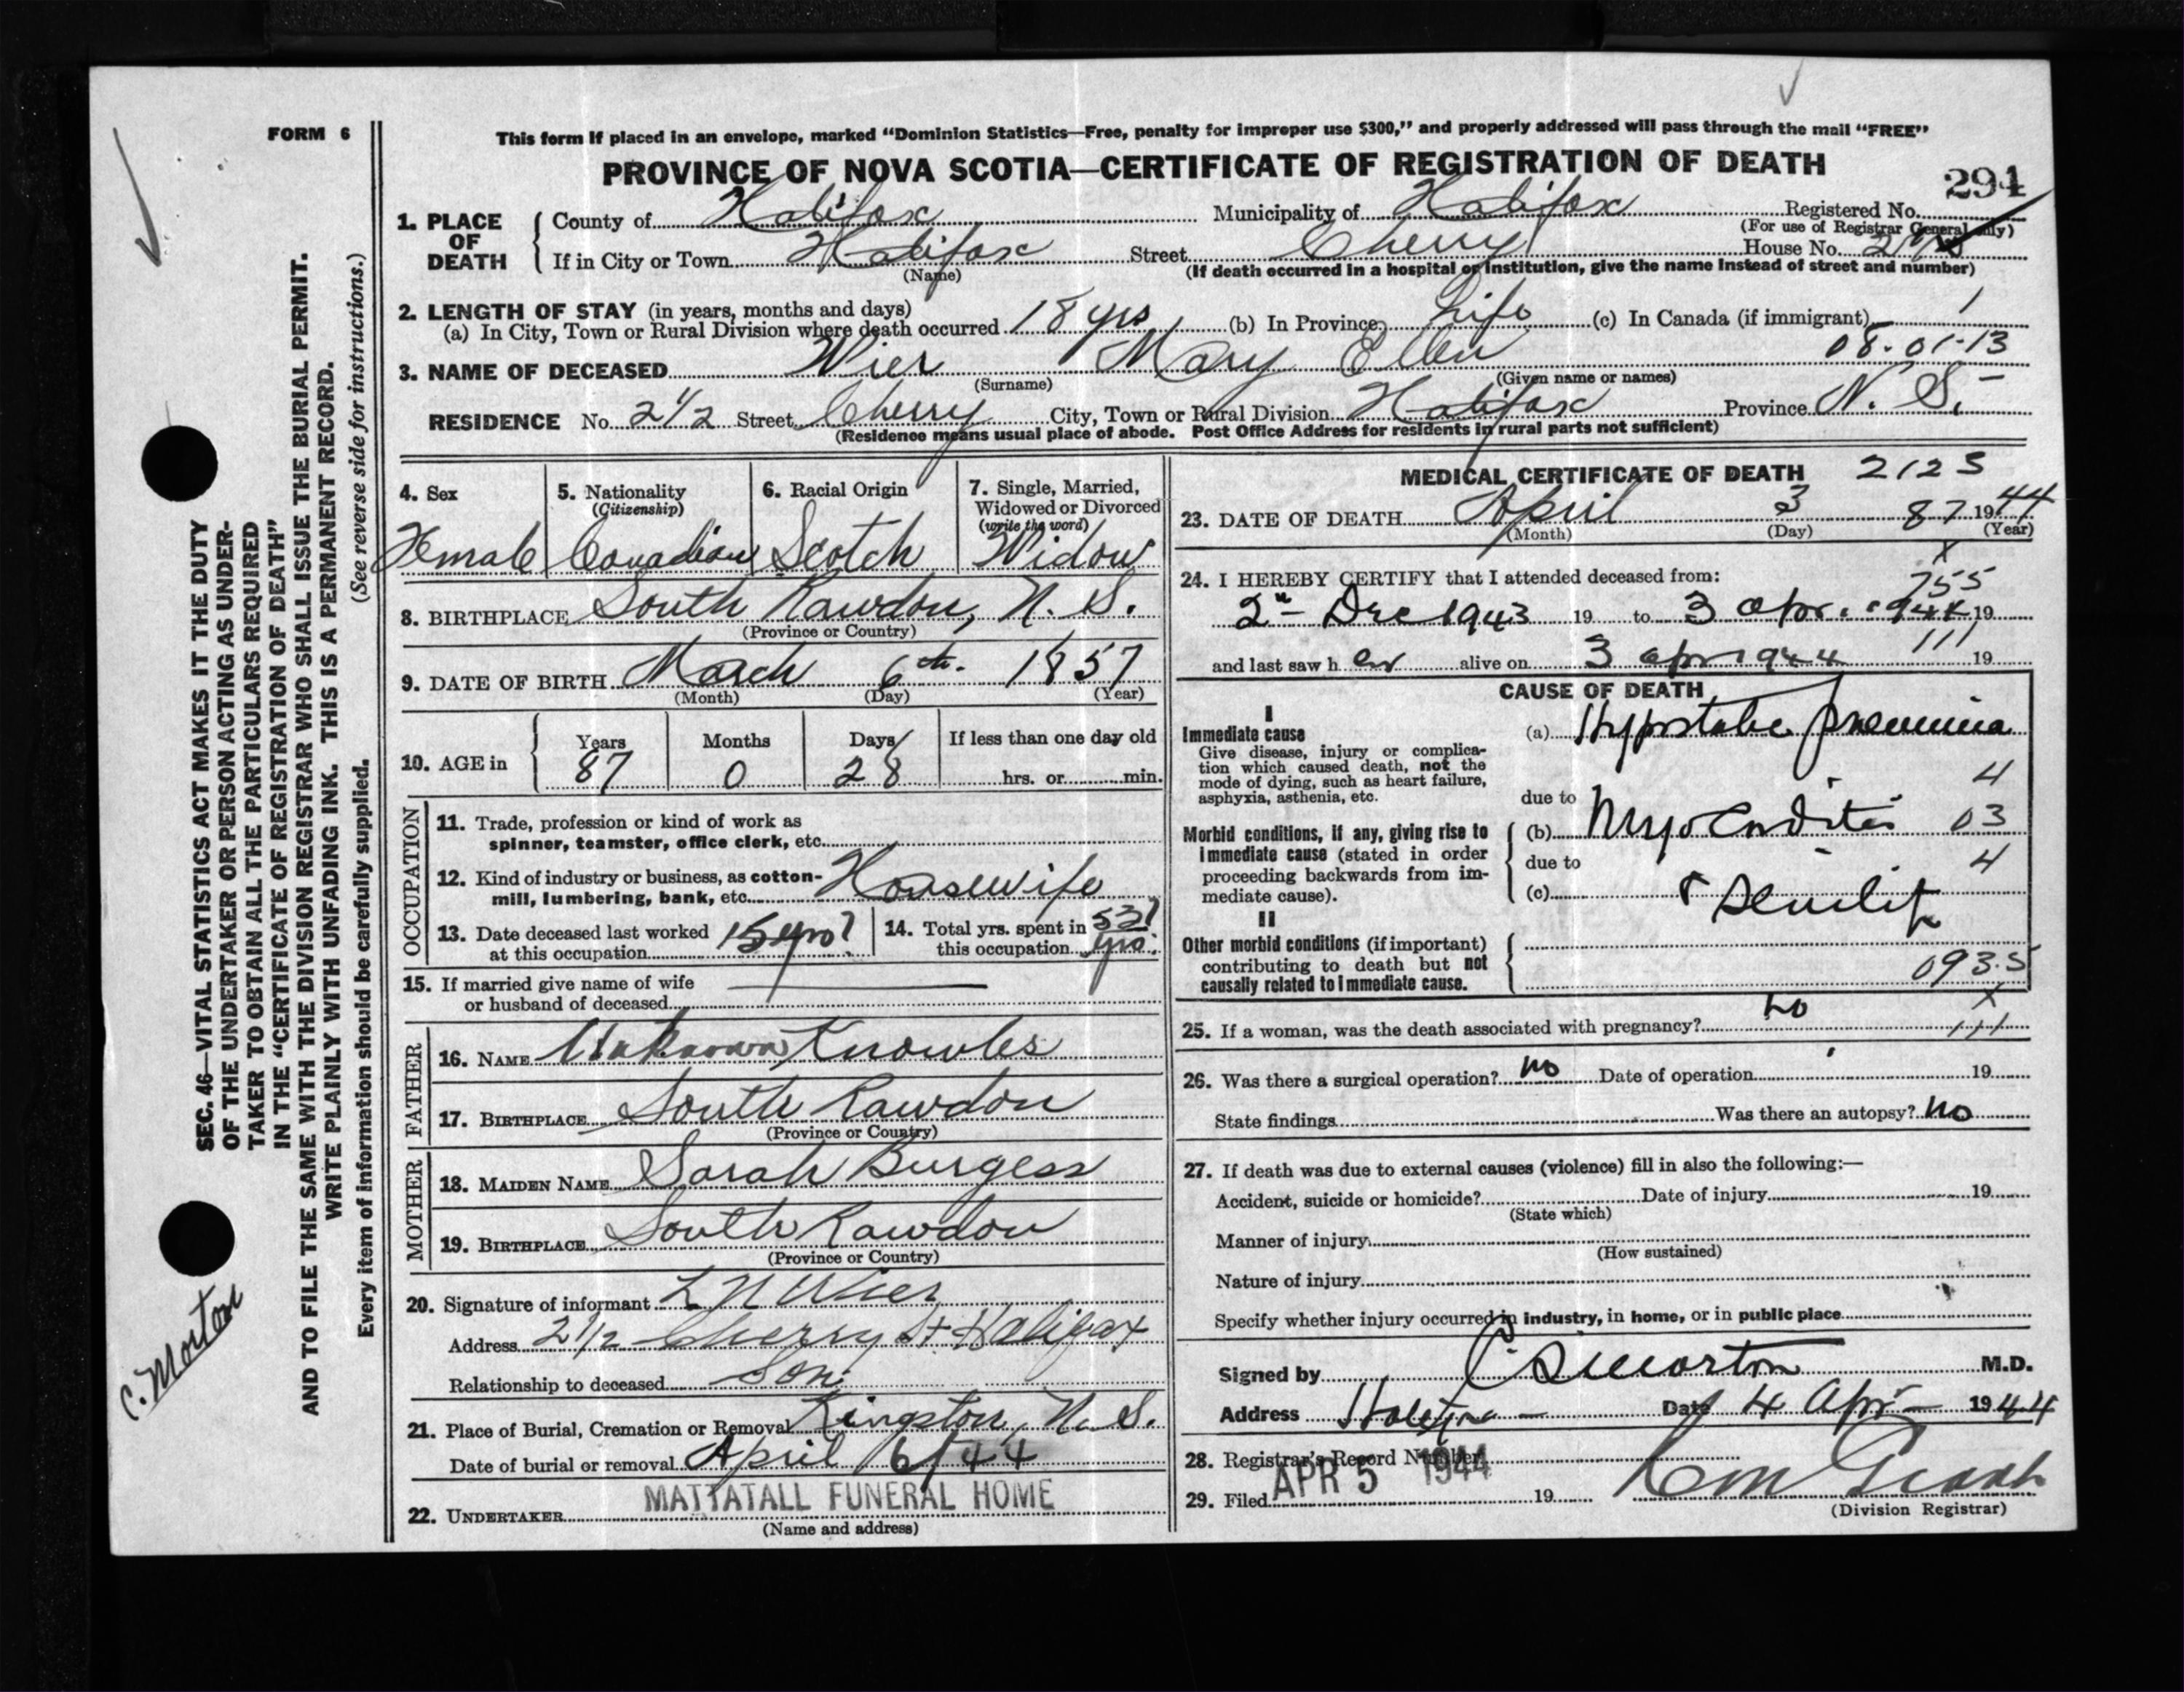 FORM 6
This form if placed in an envelope, marked “Dominion Statistics—Free, penalty for improper use $300,” and properly addressed will pass through the mail “FREE”
PROVINCE OF NOVA SCOTIA—CERTIFICATE OF REGISTRATION OF DEATH
294
1. PLACE OF DEATH County of Halifax Municipality of Halifax Registered No.
(For use of Registrar General only)
If in City or Town Halifax Street Cherry House No. 2 1/2
(Name) (If death occurred in a hospital or institution, give the name instead of street and number)
2. LENGTH OF STAY (in years, months and days)
(a) In City, Town or Rural Division where death occurred 18 yrs (b) In Province Life (c) In Canada (if immigrant)
08-01-13
3. NAME OF DECEASED Wier Mary Ellen
(Surname) (Given name or names)
RESIDENCE No. 2 1/2 Street Cherry City, Town or Rural Division Halifax Province N. S.
(Residence means usual place of abode. Post Office Address for residents in rural parts not sufficient)
4. Sex 5. Nationality (Citizenship) 6. Racial Origin 7. Single, Married, Widowed or Divorced (write the word)
Female Canadian Scotch Widow
8. BIRTHPLACE South Rawdon, N. S.
(Province or Country)
9. DATE OF BIRTH March 6th. 1857
(Month) (Day) (Year)
10. AGE in Years Months Days If less than one day old
87 0 28 hrs. or min.
OCCUPATION
11. Trade, profession or kind of work as
spinner, teamster, office clerk, etc.
12. Kind of industry or business, as cotton-
mill, lumbering, bank, etc. Housewife
13. Date deceased last worked at this occupation 15 yrs? 14. Total yrs. spent in this occupation 53? yrs.
15. If married give name of wife
or husband of deceased
FATHER
16. NAME Unknown Knowles
17. BIRTHPLACE South Rawdon
(Province or Country)
MOTHER
18. MAIDEN NAME Sarah Burgess
19. BIRTHPLACE South Rawdon
(Province or Country)
20. Signature of informant L N Wier
Address 2 1/2 Cherry St Halifax
Relationship to deceased Son
21. Place of Burial, Cremation or Removal Kingston, N. S.
Date of burial or removal April 6/44
22. UNDERTAKER MATTATALL FUNERAL HOME
(Name and address)
MEDICAL CERTIFICATE OF DEATH 2125
23. DATE OF DEATH April 3 87 1944
(Month) (Day) (Year)
24. I HEREBY CERTIFY that I attended deceased from:
755
2n Dec 1943 19 to 3 Apr. 1944 19
111
and last saw h er alive on 3 apr 1944 19
CAUSE OF DEATH
I
Immediate cause
Give disease, injury or complica-
tion which caused death, not the
mode of dying, such as heart failure,
asphyxia, asthenia, etc.
(a) Hypostatic pneumonia
4
due to
Morbid conditions, if any, giving rise to
immediate cause (stated in order
proceeding backwards from im-
mediate cause).
(b) Myocarditis 03
due to 4
(c) Senility
II
Other morbid conditions (if important)
contributing to death but not
causally related to immediate cause.
093.5
25. If a woman, was the death associated with pregnancy? no
111
26. Was there a surgical operation? no Date of operation 19
State findings Was there an autopsy? no
27. If death was due to external causes (violence) fill in also the following:—
Accident, suicide or homicide? Date of injury 19
(State which)
Manner of injury
(How sustained)
Nature of injury
Specify whether injury occurred in industry, in home, or in public place
Signed by C S Morton M.D.
Address Halifax Date 4 Apr 1944
28. Registrar's Record Number
29. Filed APR 5 1944 19
(Division Registrar)
SEC. 46—VITAL STATISTICS ACT MAKES IT THE DUTY
OF THE UNDERTAKER OR PERSON ACTING AS UNDER-
TAKER TO OBTAIN ALL THE PARTICULARS REQUIRED
IN THE “CERTIFICATE OF REGISTRATION OF DEATH”
AND TO FILE THE SAME WITH THE DIVISION REGISTRAR WHO SHALL ISSUE THE BURIAL PERMIT.
WRITE PLAINLY WITH UNFADING INK. THIS IS A PERMANENT RECORD.
Every item of information should be carefully supplied. (See reverse side for instructions.)
C. Morton